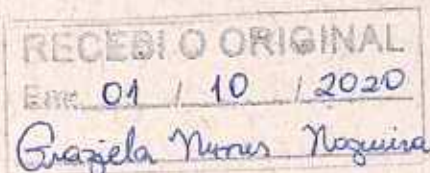 RECEBI O ORIGINAL
Em: 01 / 10 / 2020
Graziela Nunes Nogueira